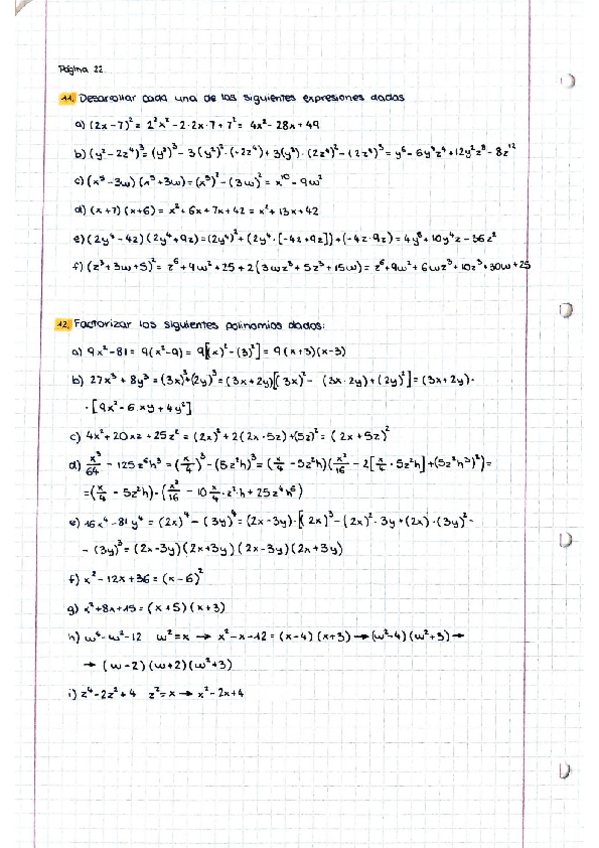 Página 22.
11. Desarrollar cada una de las siguientes expresiones dadas
a) (2x-7)² = 2²x² - 2·2x·7 + 7² = 4x² - 28x + 49
b) (y²-2z⁴)³ = (y²)³ - 3(y²)²·(-2z⁴) + 3(y²)·(2z⁴)² - (2z⁴)³ = y⁶ - 6y⁴z⁴ + 12y²z⁸ - 8z¹²
c) (x⁵-3w)(x⁵+3w) = (x⁵)² - (3w)² = x¹⁰ - 9w²
d) (x+7)(x+6) = x² + 6x + 7x + 42 = x² + 13x + 42
e) (2y⁴-4z)(2y⁴+9z) = (2y⁴)² + (2y⁴·[-4z+9z]) + (-4z·9z) = 4y⁸ + 10y⁴z - 36z²
f) (z³+3w+5)² = z⁶ + 9w² + 25 + 2(3wz³ + 5z³ + 15w) = z⁶ + 9w² + 6wz³ + 10z³ + 30w + 25
12. Factorizar los siguientes polinomios dados:
a) 9x² - 81 = 9(x²-9) = 9[(x)² - (3)²] = 9(x+3)(x-3)
b) 27x³ + 8y³ = (3x)³ + (2y)³ = (3x+2y)[(3x)² - (3x·2y) + (2y)²] = (3x+2y)·
·[9x² - 6·xy + 4y²]
c) 4x² + 20xz + 25z² = (2x)² + 2(2x·5z) + (5z)² = (2x+5z)²
d) x³/64 - 125z⁶h³ = (x/4)³ - (5z²h)³ = (x/4 - 5z²h)(x²/16 - 2[x/4·5z²h] + (5z²h³)²) =
= (x/4 - 5z²h)·(x²/16 - 10x/4·z²·h + 25z⁴h⁶)
e) 16x⁴ - 81y⁴ = (2x)⁴ - (3y)⁴ = (2x-3y)·[(2x)³ - (2x)²·3y + (2x)·(3y)² -
- (3y)³ = (2x-3y)(2x+3y)(2x-3y)(2x+3y)
f) x² - 12x + 36 = (x-6)²
g) x² + 8x + 15 = (x+5)(x+3)
h) w⁴ - w² - 12 w² = x → x² - x - 12 = (x-4)(x+3) → (w²-4)(w²+3) →
→ (w-2)(w+2)(w²+3)
i) z⁴ - 2z² + 4 z² = x → x² - 2x + 4